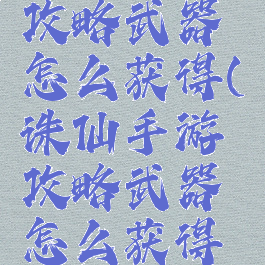 攻略武器
怎么获得(
诛仙手游
攻略武器
怎么获得